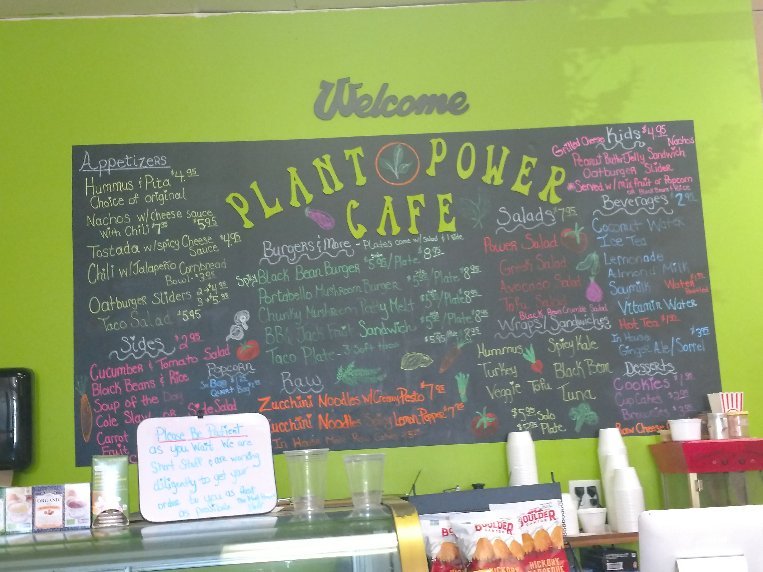 Welcome
PLANT POWER
CAFE
Appetizers
Hummus & Pita $4.95
Choice of original
Nachos w/ cheese sauce
with Chili 7 $5.95
Tostada w/ spicy Cheese Sauce $4.95
Chili w/ Jalapeño Cornbread
Bowl
Oatburger Sliders
Taco Salad $5.95
Sides $2.95
Cucumber & Tomato Salad
Black Beans & Rice
Soup of the Day
Cole Slaw or Side Salad
Carrot
Fruit
Popcorn
Burgers & More - Plates come w/ Salad & 1 Side
Spicy Black Bean Burger $5.95/Plate $8.95
Portobello Mushroom Burger /Plate $8.95
Chunky Mushroom Patty Melt /Plate $8.95
BBQ Jack Fruit Sandwich
Taco Plate - 3 Soft tacos
Raw
Zucchini Noodles w/ Creamy Pesto $7.95
Zucchini Noodles Spicy Lemon Pepper $7.95
In House Made
Salads $7.95
Power Salad
Greek Salad
Avocado Salad
Tofu Salad
Black Bean Crumble Salad
Wraps/Sandwiches
Hummus Spicy Kale
Turkey Black Bean
Veggie Tofu Tuna
$5.95 Solo
Plate
Kids $4.95
Grilled Cheese Nachos
Peanut Butter/Jelly Sandwich
Oatburger Slider
*Served w/ mix fruit or Popcorn
or Black Beans & Rice
Beverages $2.95
Coconut Water
Ice Tea
Lemonade
Almond Milk
Soymilk Water
Vitamin Water
Hot Tea
In House $3.95
Ginger Ale/Sorrel
Desserts
Cookies
Cup Cakes
Brownies
Raw Cheese
Please Be Patient
as you Wait. We are
Short Staff & are working
diligently to get your
order to you as fast
as possible
ORGANIC
BOULDER
BOULDER
HICKORY
HICKORY